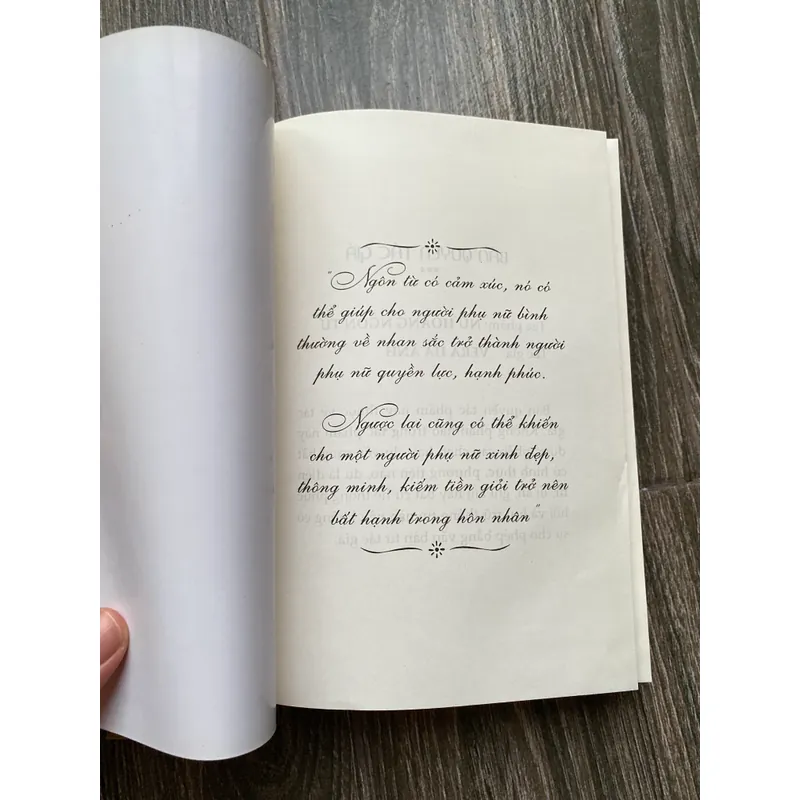 "Ngôn từ có cảm xúc, nó có
thể giúp cho người phụ nữ bình
thường về nhan sắc trở thành người
phụ nữ quyền lực, hạnh phúc.
Ngược lại cũng có thể khiến
cho một người phụ nữ xinh đẹp,
thông minh, kiếm tiền giỏi trở nên
bất hạnh trong hôn nhân"